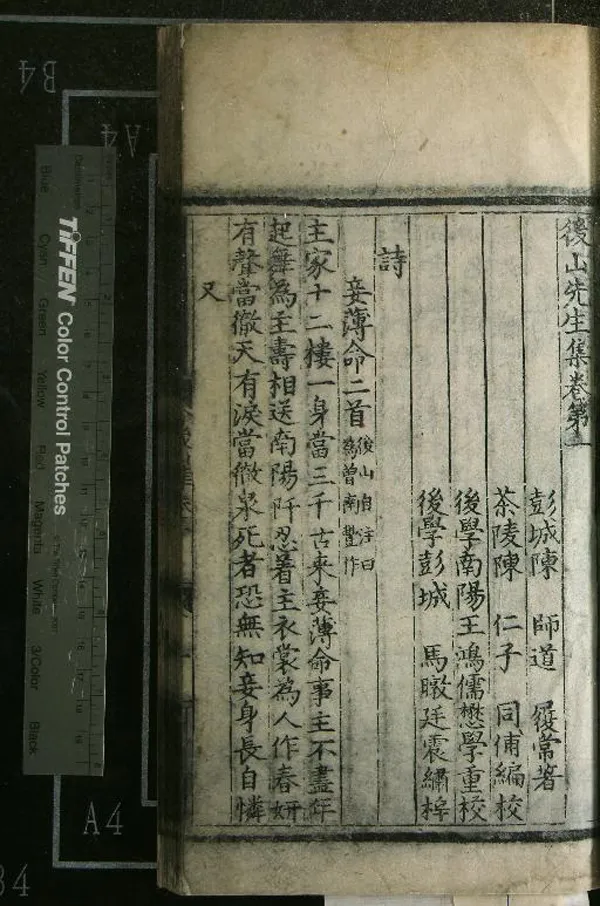 後山先生集卷第一
彭城陳 師道 履常著
茶陵陳 仁子 同俌編校
後學南陽王鴻儒懋學重校
後學彭城 馬暾廷震繡梓
詩
妾薄命二首 後山自注曰為曾南豐作
主家十二樓一身當三千古来妾薄命事主不盡年
起舞為主壽相送南陽阡忍著主衣裳為人作春妍
有聲當徹天有淚當徹泉死者恐無知妾身長自憐
又
TIFFEN Color Control Patches
Blue Cyan Green Yellow Red Magenta White 3/Color Black
B4
A4
A4